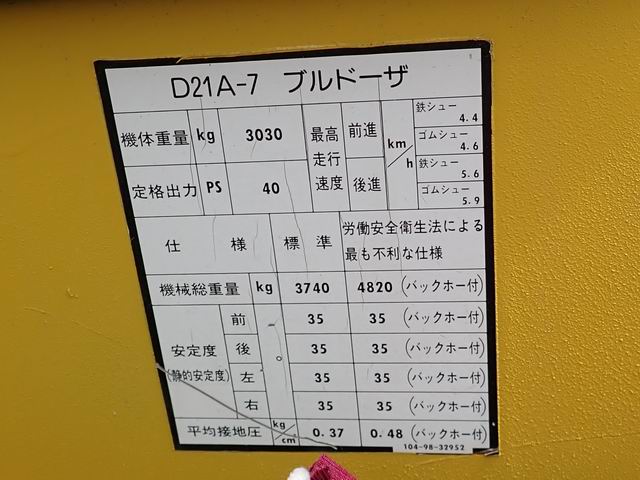 D21A-7 ブルドーザ
機体重量 kg 3030 最高走行速度 前進 km/h 鉄シュー 4.4
ゴムシュー 4.6
定格出力 PS 40 後進 鉄シュー 5.6
ゴムシュー 5.9
仕様 標準 労働安全衛生法による
最も不利な仕様
機械総重量 kg 3740 4820 (バックホー付)
安定度 (静的安定度) 前 ° 35 35 (バックホー付)
後 35 35 (バックホー付)
左 35 35 (バックホー付)
右 35 35 (バックホー付)
平均接地圧 kg/cm 0.37 0.48 (バックホー付)
104-98-32952